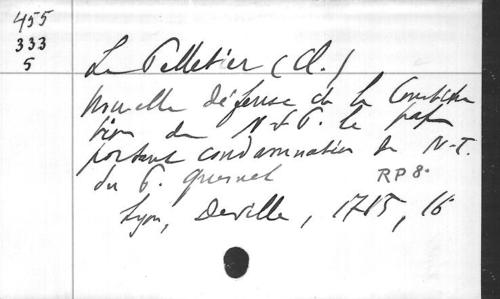 455
333
5
Le Pelletier (Cl.)
Nouvelle défense de la Constitu
tion de N-S-P. le pape
portant condamnation du N-T.
du P. Quesnel RP 8°
Lyon, Deville, 1715, 16